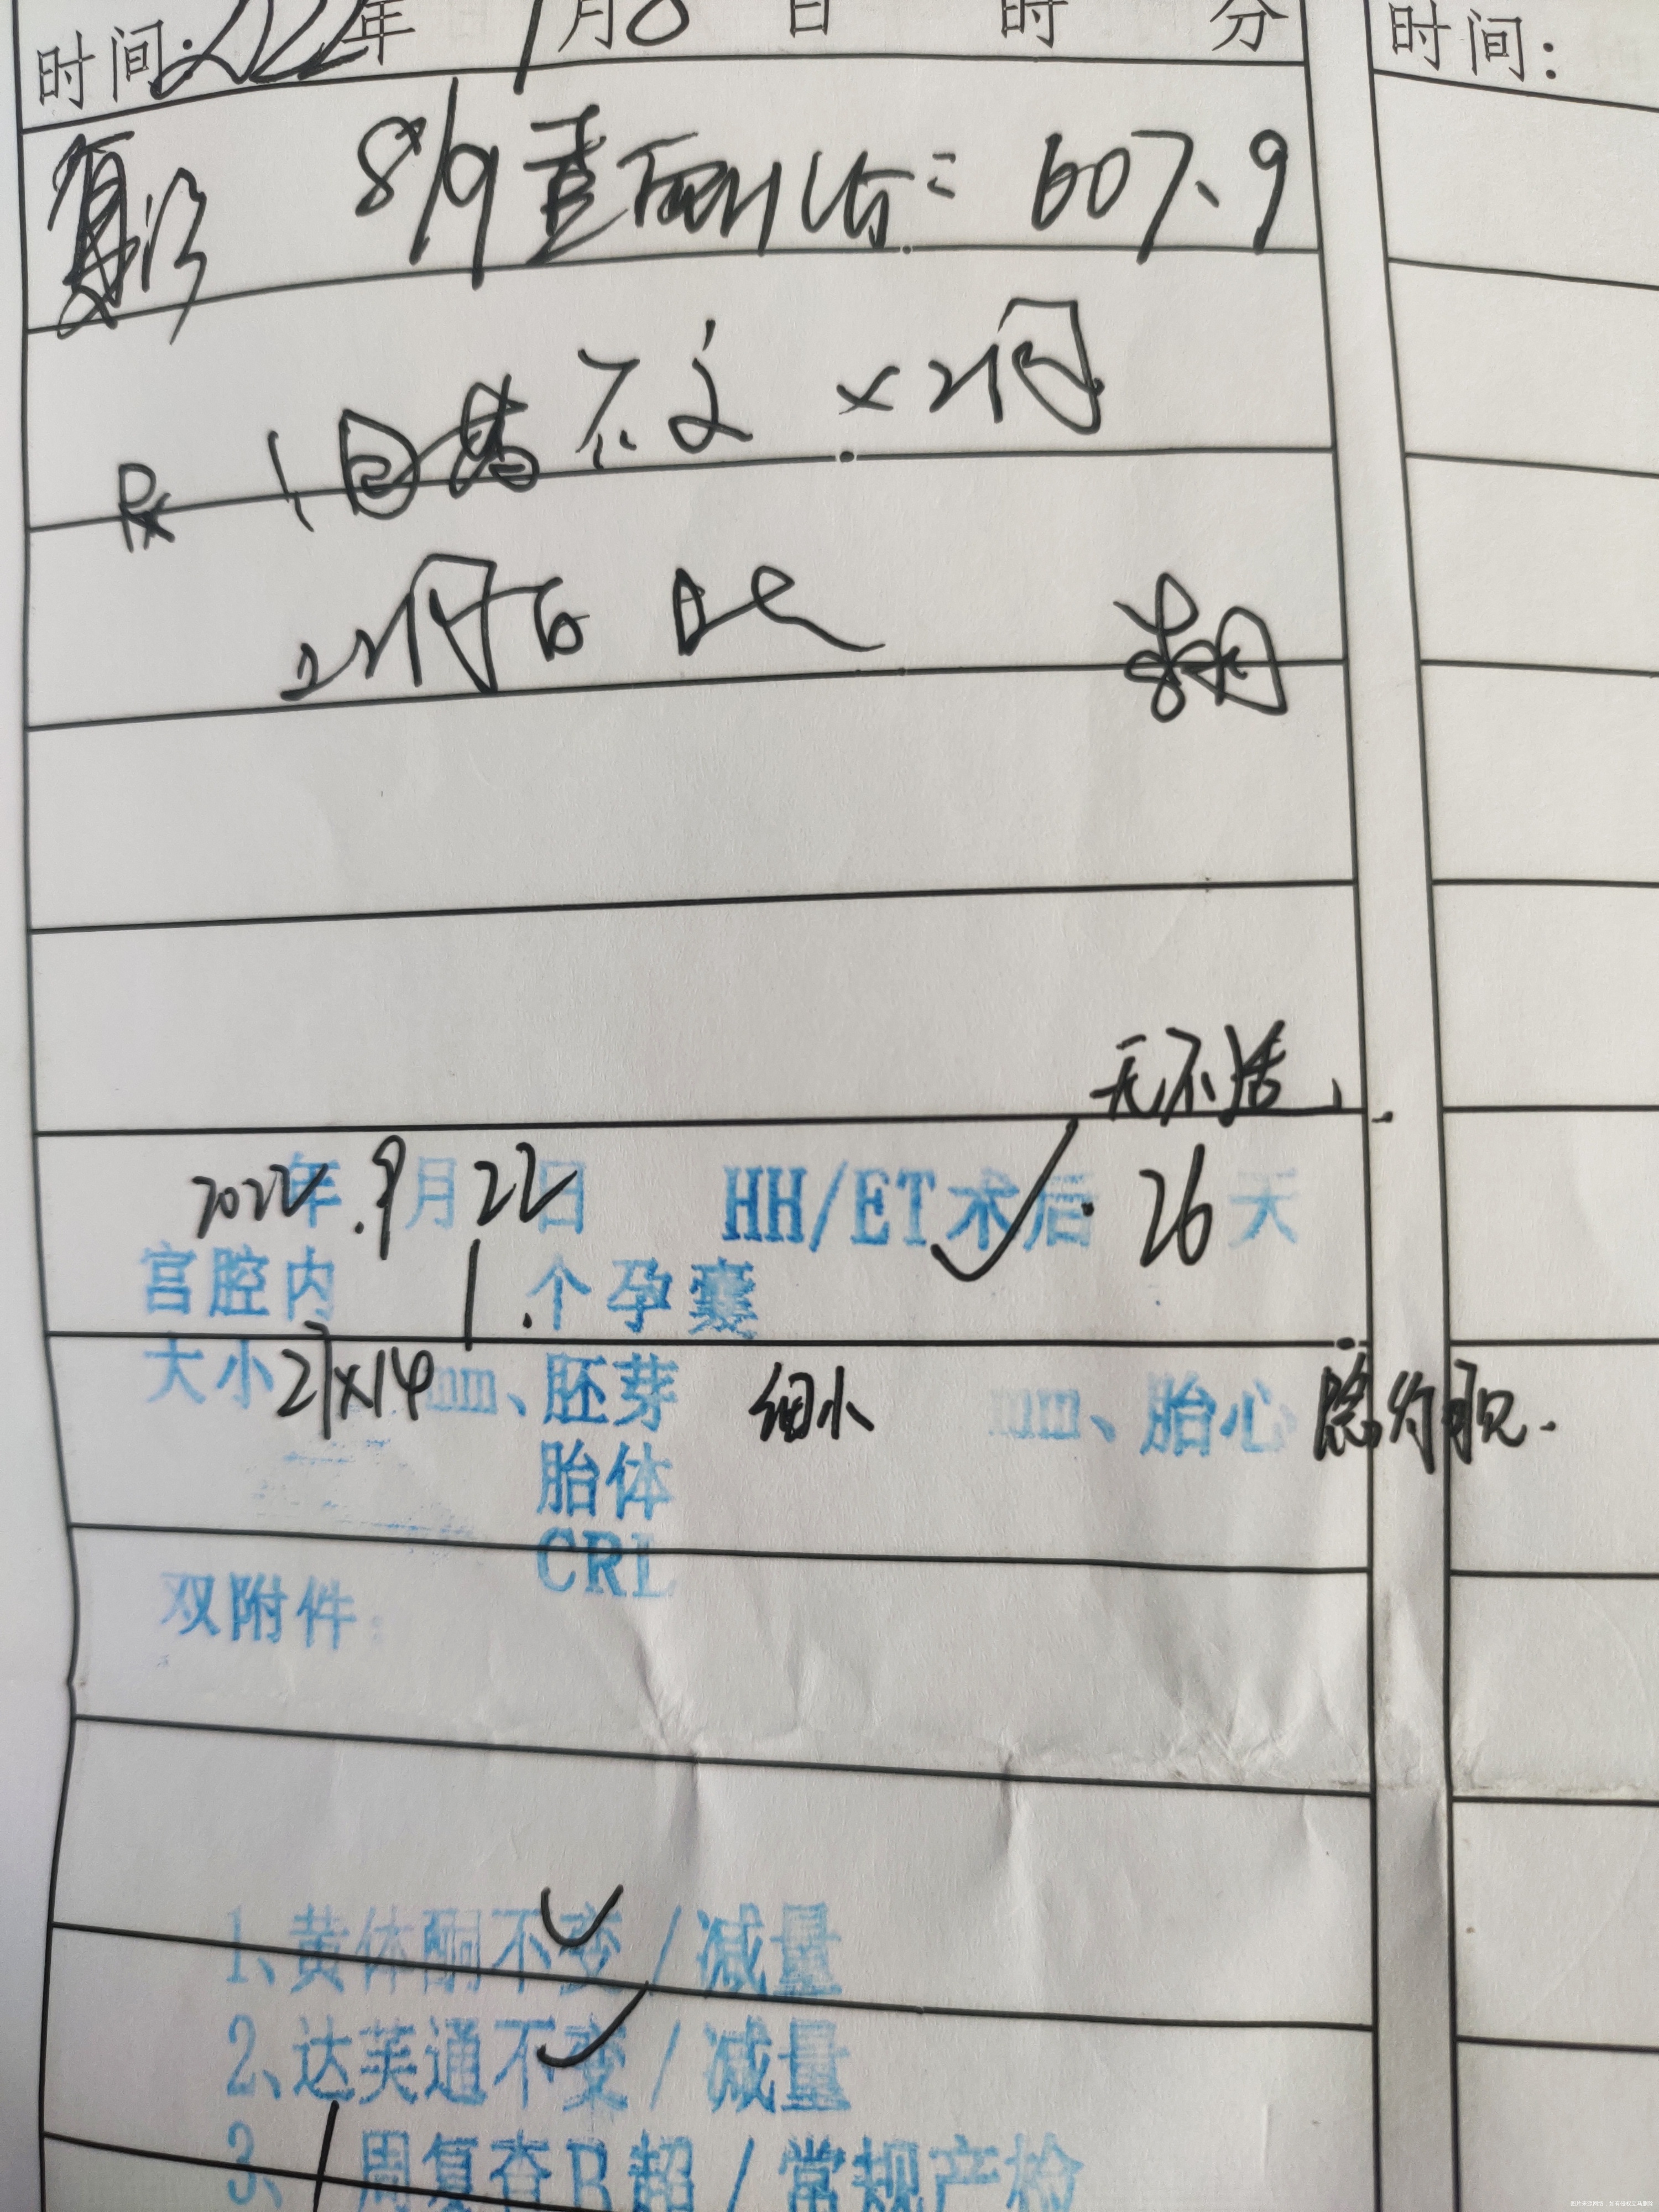 时间:2022年 9月8日 时 分 时间:
复诊 8/9查血HCG: 607.9
Rx 1、目前不变 ×2周
2、2周后B超
无不适、
2022年.9月22日 HH/ET术后.26天
宫腔内 1.个孕囊
大小21×14mm、胚芽 细小 mm、胎心 隐约可见.
胎体
CRL
双附件:
1、黄体酮不变/减量
2、达芙通不变/减量
3、1周复查B超/常规产检